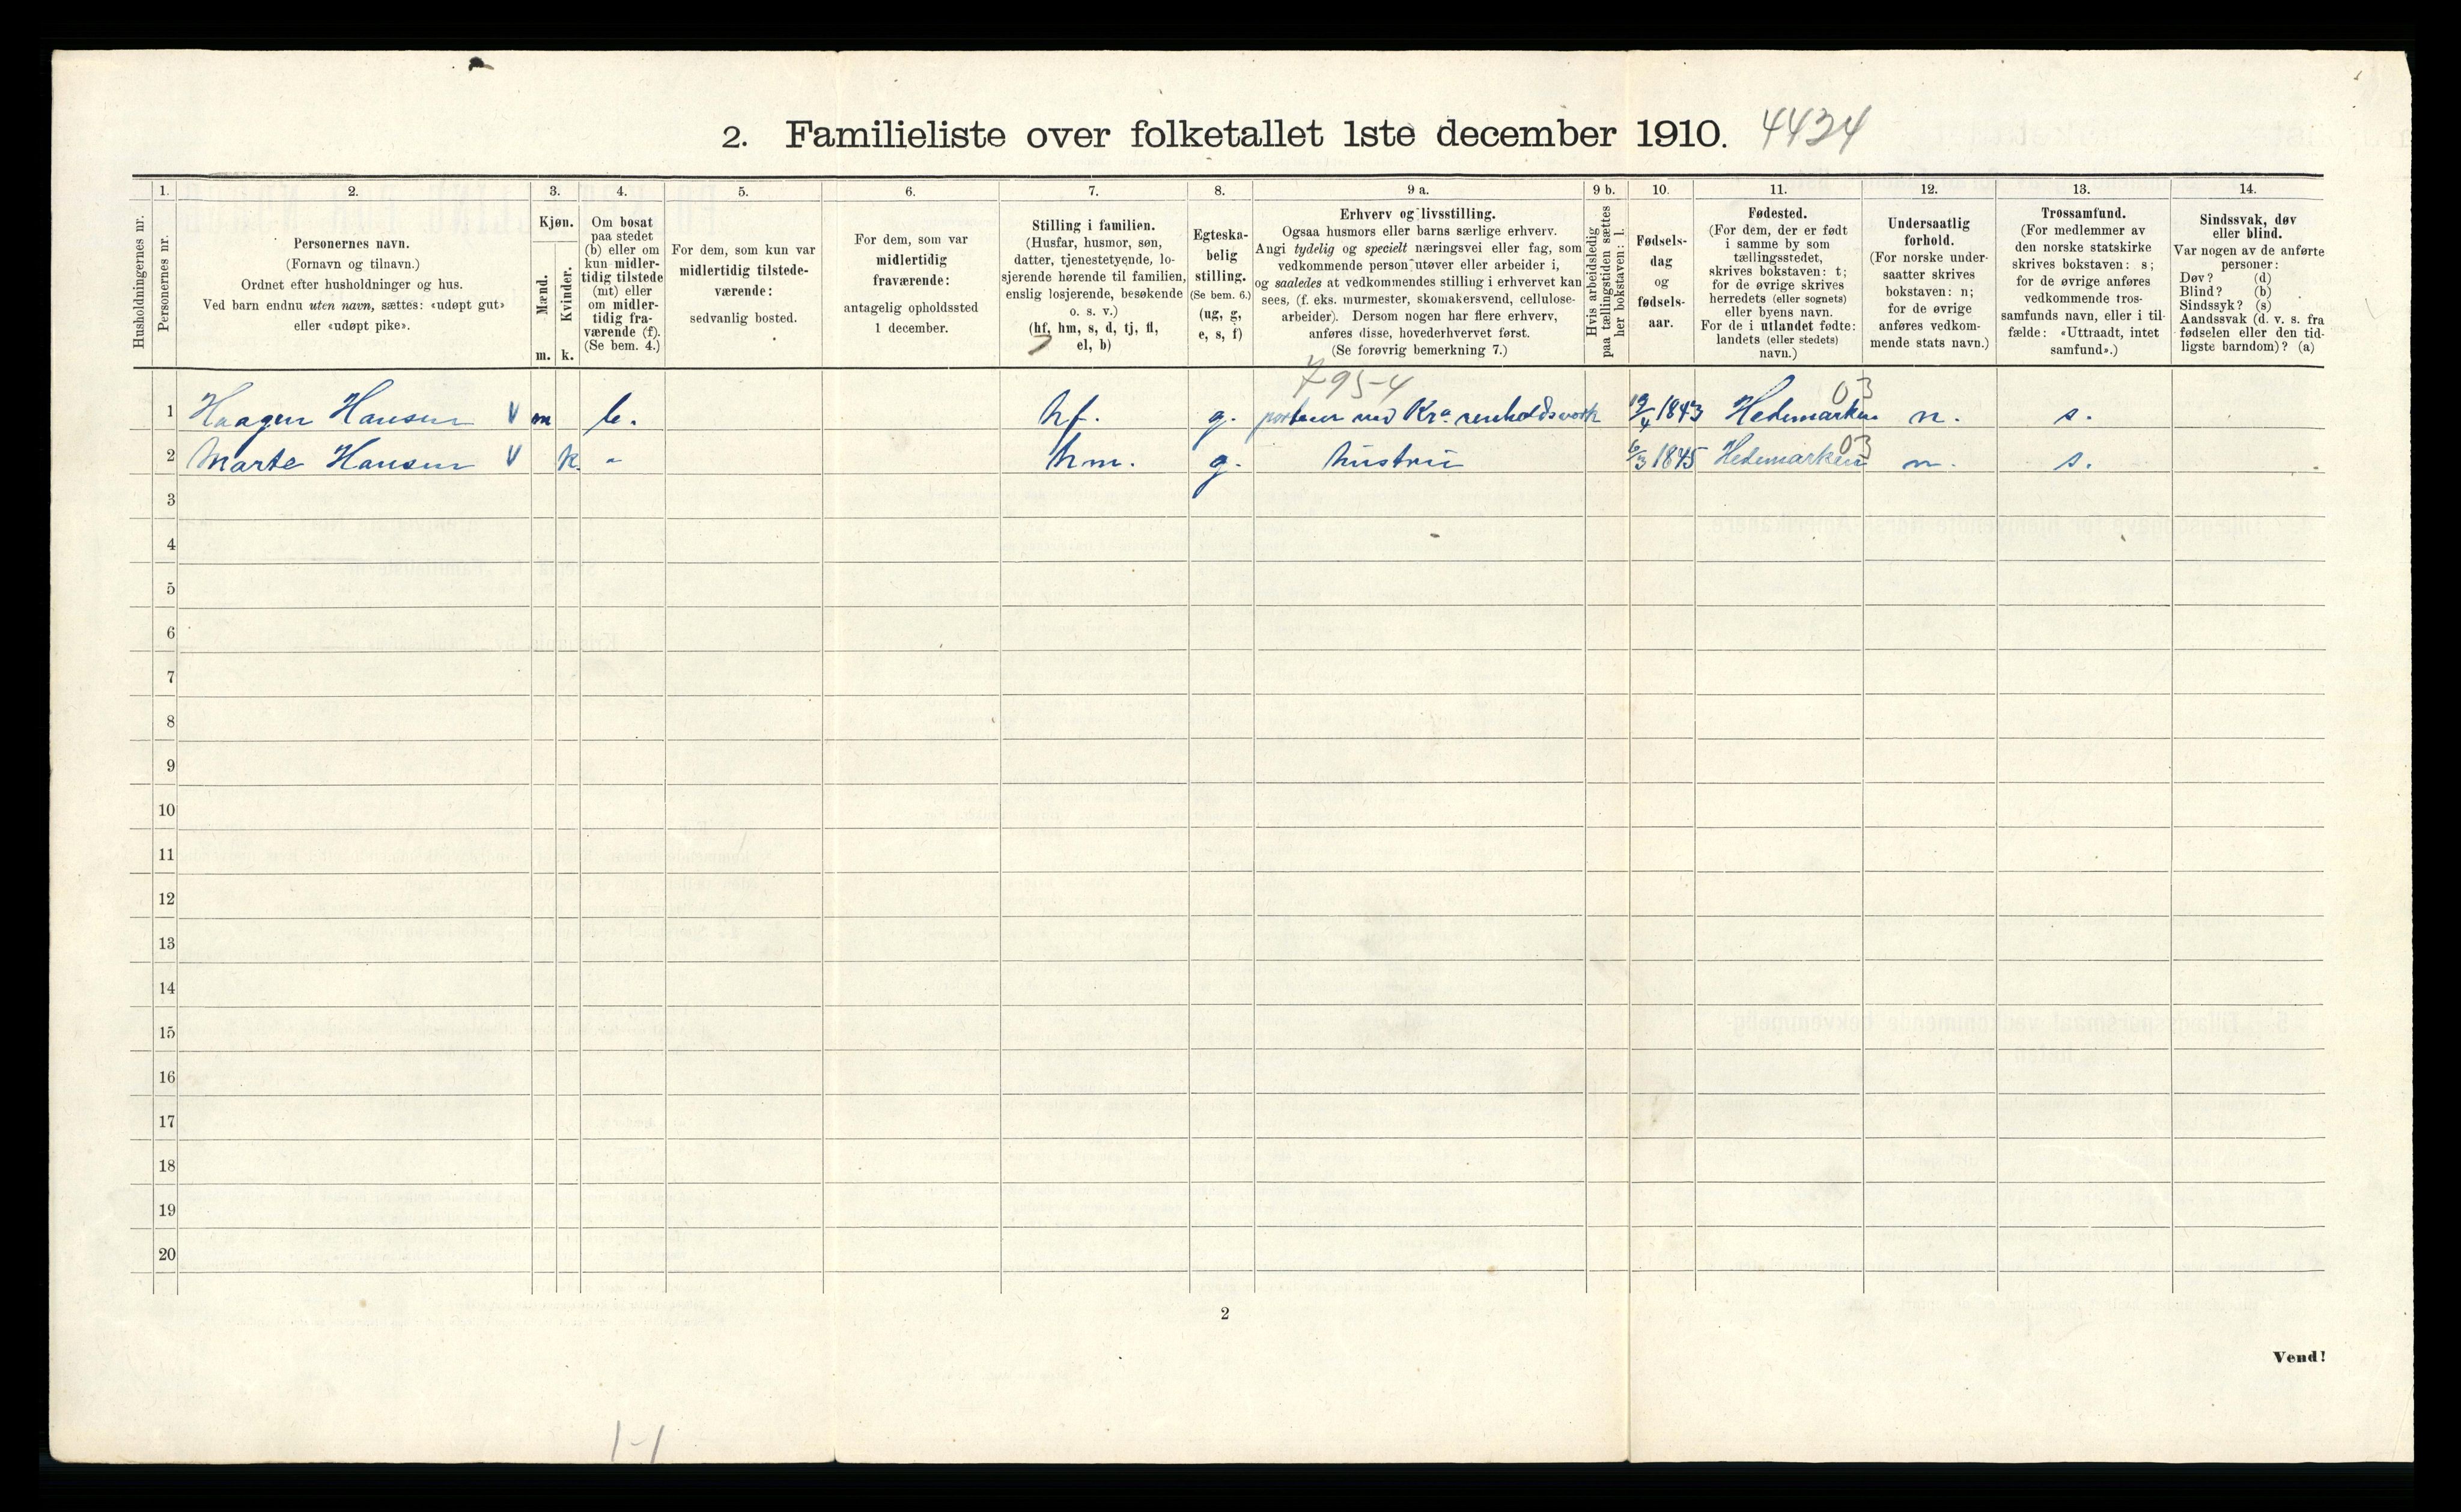 2. Familieliste over folketallet 1ste december 1910. 4434
1. 2. 3. 4. 5. 6. 7. 8. 9 a. 9 b. 10. 11. 12. 13. 14.
Husholdningernes nr.
Personernes nr.
Personernes navn.
(Fornavn og tilnavn.)
Ordnet efter husholdninger og hus.
Ved barn endnu uten navn, sættes: «udøpt gut»
eller «udøpt pike».
Kjøn.
Mænd.
Kvinder.
m. k.
Om bosat
paa stedet
(b) eller om
kun midler-
tidig tilstede
(mt) eller
om midler-
tidig fra-
værende (f).
(Se bem. 4.)
For dem, som kun var
midlertidig tilstede-
værende:
sedvanlig bosted.
For dem, som var
midlertidig
fraværende:
antagelig opholdssted
1 december.
Stilling i familien.
(Husfar, husmor, søn,
datter, tjenestetyende, lo-
sjerende hørende til familien,
enslig losjerende, besøkende
o. s. v.)
(hf, hm, s, d, tj, fl,
el, b)
Egteska-
belig
stilling.
(Se bem. 6.)
(ug, g,
e, s, f)
Erhverv og livsstilling.
Ogsaa husmors eller barns særlige erhverv.
Angi tydelig og specielt næringsvei eller fag, som
vedkommende person utøver eller arbeider i,
og saaledes at vedkommendes stilling i erhvervet kan
sees, (f. eks. murmester, skomakersvend, cellulose-
arbeider). Dersom nogen har flere erhverv,
anføres disse, hovederhvervet først.
(Se forøvrig bemerkning 7.)
Hvis arbeidsledig
paa tællingstiden sættes
her bokstaven: l.
Fødsels-
dag
og
fødsels-
aar.
Fødested.
(For dem, der er født
i samme by som
tællingsstedet,
skrives bokstaven: t;
for de øvrige skrives
herredets (eller sognets)
eller byens navn.
For de i utlandet fødte:
landets (eller stedets)
navn.)
Undersaatlig
forhold.
(For norske under-
saatter skrives
bokstaven: n;
for de øvrige
anføres vedkom-
mende stats navn.)
Trossamfund.
(For medlemmer av
den norske statskirke
skrives bokstaven: s;
for de øvrige anføres
vedkommende tros-
samfunds navn, eller i til-
fælde: «Uttraadt, intet
samfund».)
Sindssvak, døv
eller blind.
Var nogen av de anførte
personer:
Døv? (d)
Blind? (b)
Sindssyk? (s)
Aandssvak (d. v. s. fra
fødselen eller den tid-
ligste barndom)? (a)
795-4 03
1 Haagen Hansen V m b. hf. g. ved Kra renholdsverk 1843 Hedemarken n. s.
03
2 Marte Hansen V k. - hm. g. hustru 6/3 1845 Hedemarken n. s.
3
4
5
6
7
8
9
10
11
12
13
14
15
16
17
18
19
20
2
Vend!
1-1